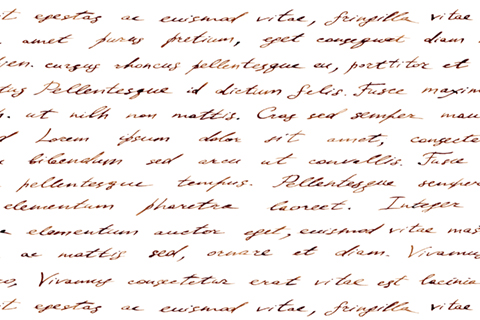 it egestas ac euismod vitae, fringilla vitae
amet purus pretium, eget consequat diam
cursus rhoncus pellentesque eu, porttitor et
tus Pellentesque id dictum felis. Fusce maxim
ut nibh non mattis. Cras sed semper mau
d Lorem ipsum dolor sit amet, consecte
bibendum sed arcu ut convallis. Fusce
pellentesque tempus. Pellentesque semper
elementum pharetra laoreet. Integer
elementum auctor eget, euismod vitae mas
ac mattis sed, ornare et diam. Vivamus
Vivamus consectetur erat vitae est lacinia
it egestas ac euismod vitae, fringilla vitae